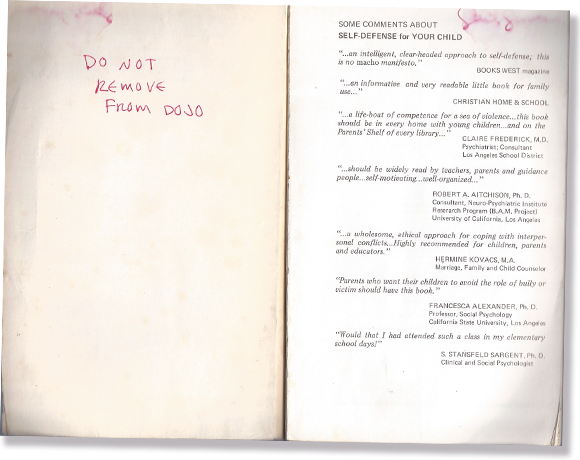 DO NOT
REMOVE
FROM DOJO
SOME COMMENTS ABOUT
SELF-DEFENSE for YOUR CHILD
"...an intelligent, clear-headed approach to self-defense; this
is no macho manifesto."
BOOKS WEST magazine
"...an informative and very readable little book for family
use..."
CHRISTIAN HOME & SCHOOL
"...a life-boat of competence for a sea of violence...this book
should be in every home with young children...and on the
Parents' Shelf of every library..."
CLAIRE FREDERICK, M.D.
Psychiatrist; Consultant
Los Angeles School District
"...should be widely read by teachers, parents and guidance
people...self-motivating...well-organized..."
ROBERT A. AITCHISON, Ph. D.
Consultant, Neuro-Psychiatric Institute
Research Program (B.A.M. Project)
University of California, Los Angeles
"...a wholesome, ethical approach for coping with interper-
sonal conflicts...Highly recommended for children, parents
and educators."
HERMINE KOVACS, M.A.
Marriage, Family and Child Counselor
"Parents who want their children to avoid the role of bully or
victim should have this book."
FRANCESCA ALEXANDER, Ph. D.
Professor, Social Psychology
California State University, Los Angeles
"Would that I had attended such a class in my elementary
school days!"
S. STANSFELD SARGENT, Ph. D.
Clinical and Social Psychologist